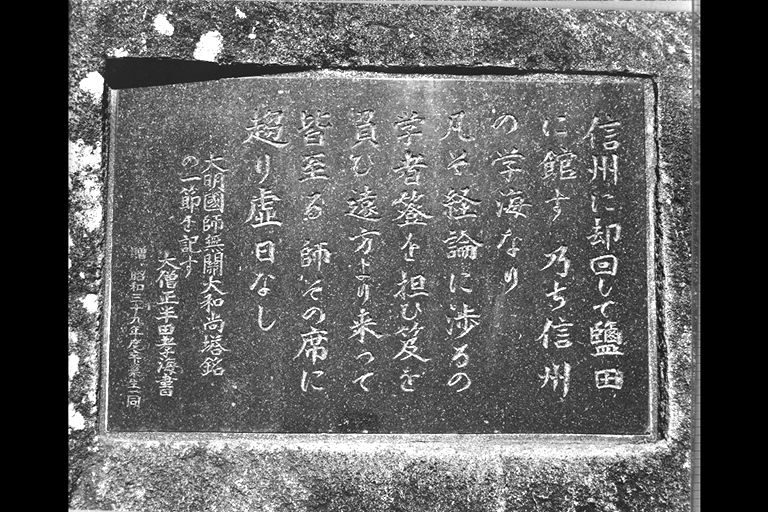 信州に却回して鹽田
に館す 乃ち信州
の学海なり
凡そ経論に渉るの
学者簦を担ひ笈を
負ひ遠方より来って
皆至る 師その席に
趨り虚日なし
大明國師無關大和尚塔銘
の一節を記す
大僧正半田孝海書
贈 昭和三十九年度卒業生一同